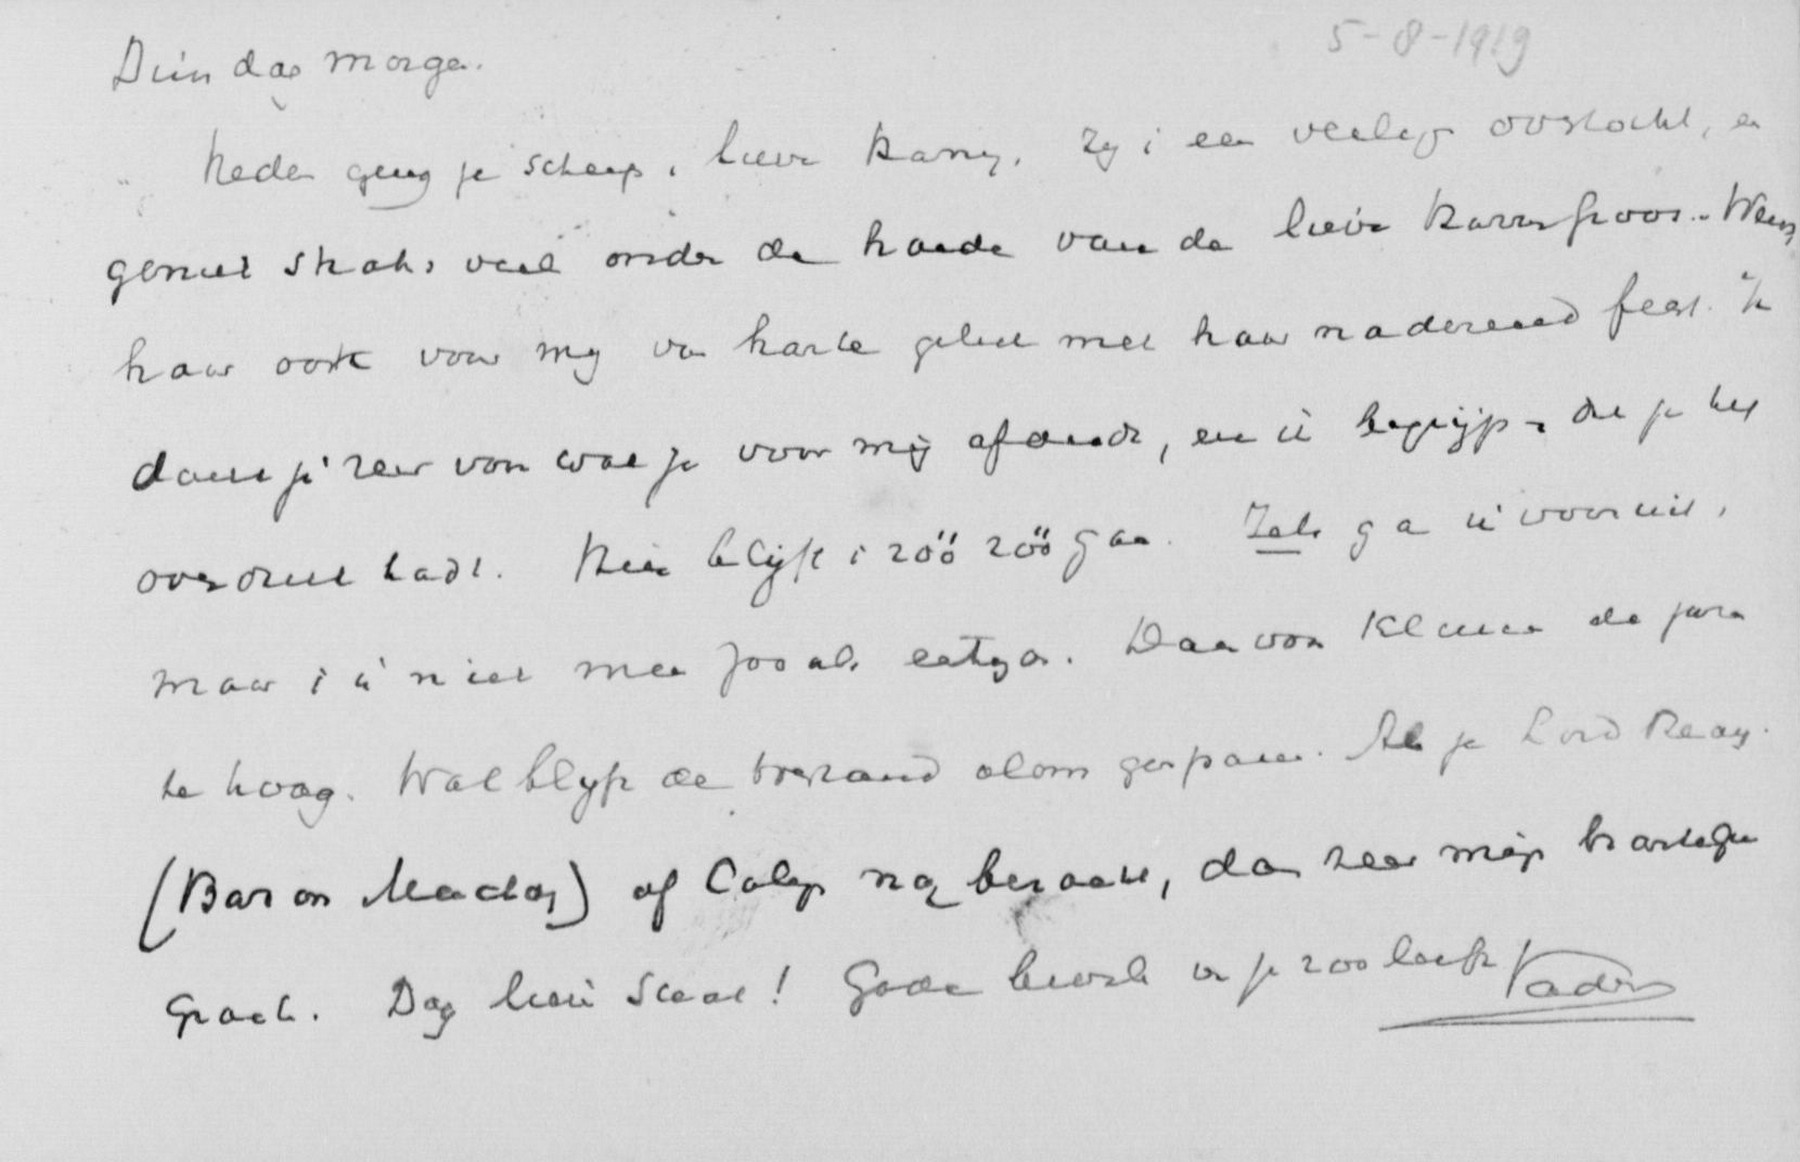 5-8-1919
Dinsdag morgen.
Heden ging je scheep, lieve Harry. Zij 't een veilige overtocht, en
geniet straks veel onder de hoede van de lieve Wens
haar ook voor mij van harte geluk met haar naderend feest. Ik
dank je zeer van wat je voor mij afdeedt, en ik begrijp dat je het
overdruk hadt. Hier blijft 't zóó zóó gaan. Iets ga ik vooruit,
maar 't is niet meer zooals eertijds. Daarvan klimmen de jaren
te hoog. Wel blijft de toestand alom gespannen. Als je Lord Reay
(Baron Mackay) of Colijn nog bezoekt, dan zeer mijn hartelijke
groet. Dag lieve schat! Gode bevolen van je zoo liefh. Vader